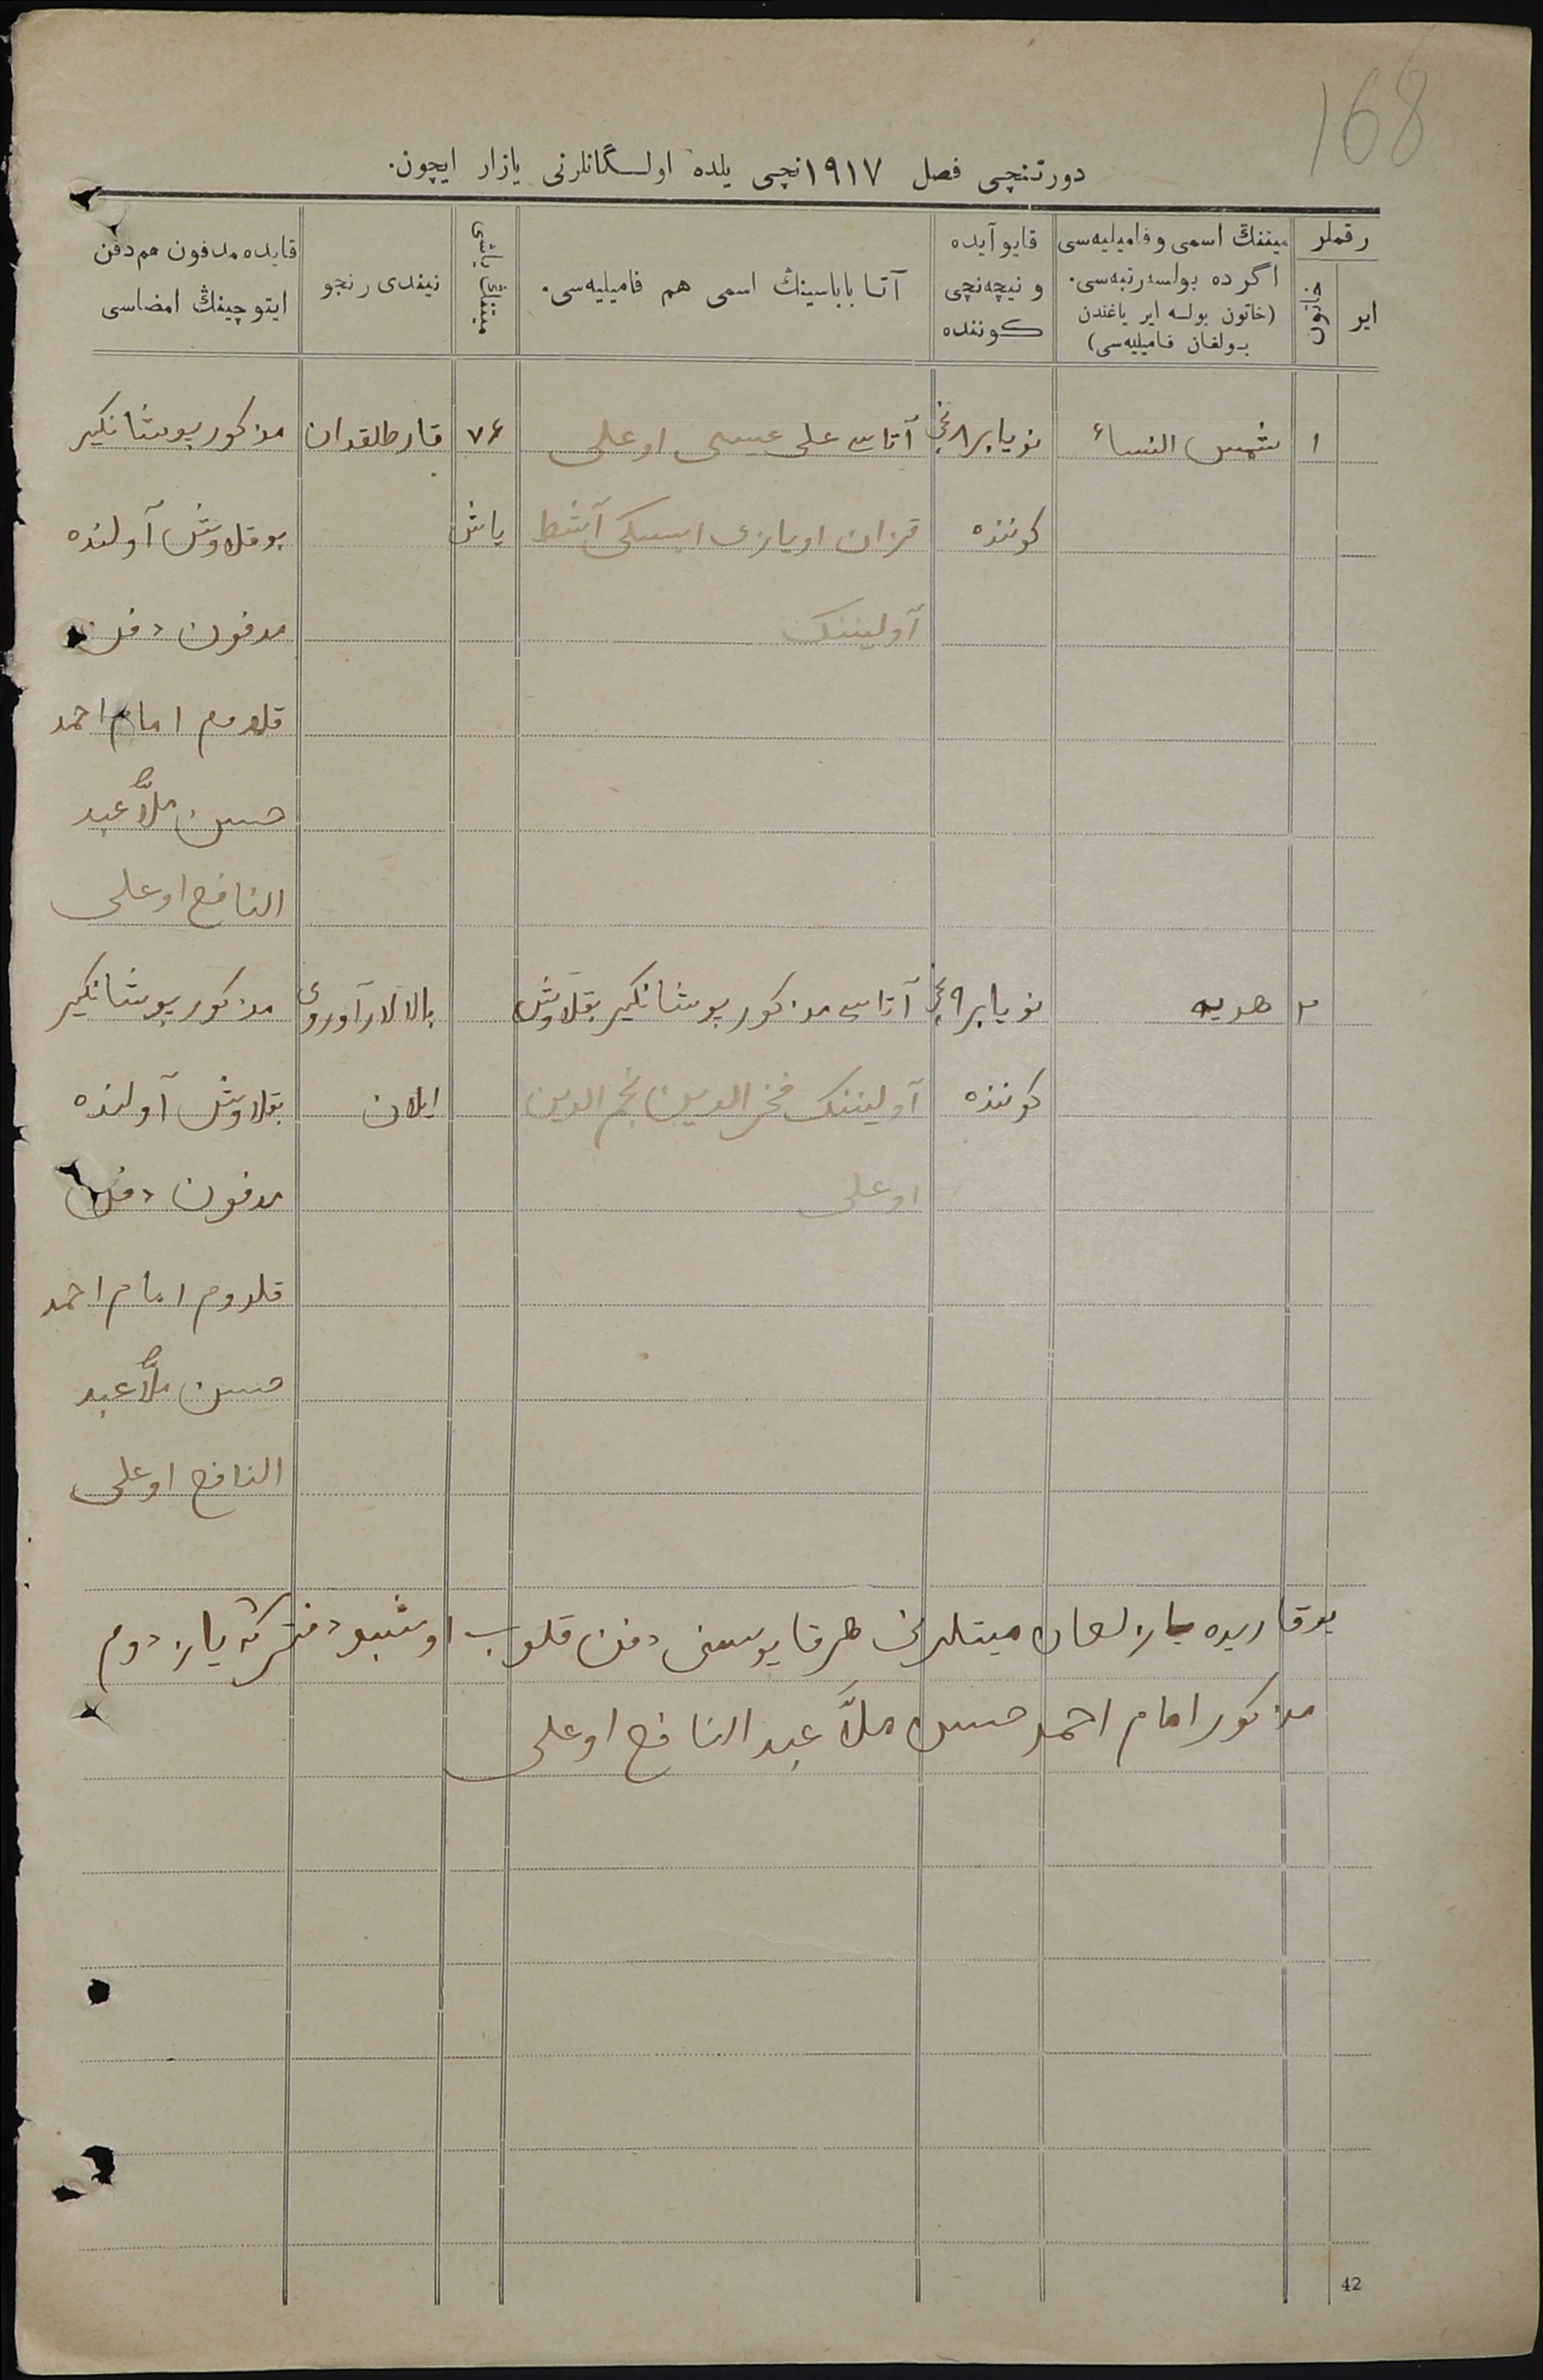 168
دورتنچی فصل ۱۹۱۷نچی یلده اولـگانلرنی یازار ایچون.
رقملر
ایر
خاتون
میتنڭ اسمی و فامیلیه‌سی
اگر ده بولسه رتبه‌سی.
(خاتون بولسه ایر یاغندن
بـولغان فـامیلیه‌سی)
قایو آیده
و نیچه‌نچی
کوننده
آتـا بابـاسینڭ اسمی هم فامیلیه‌سی.
میتنڭ یاشی
نیندی رنجو
قایده مدفون هم دفن
ایتوچینڭ امضاسی
۱
شمس النساء
نویابر ۸ نچی
کوننده
آتاسی علی عیسی اوغلی
قزان اویازی ایسکی آشط
آولیننک
۷۶
یاش
قارطلقدان
مذکور پوشانگیر
بوقلاوش آولنده
مدفون دفن
قلدوم امام احمد
حسن ملاّ عبد
النافع اوغلی
۲
هدیه
نویابر ۹ نچی
کوننده
آتاسی مذکور پوشانگیر بقلاوش
آولیننک فخر الدین نجم الدین
اوغلی
بالالار آوروی
ایلان
مذکور پوشانگیر
بقلاوش آولنده
مدفون دفن
قلدوم امام احمد
حسن ملاّ عبد
النافع اوغلی
یوقاریده یازلغان میتلرنی هرقایوسنی دفن قلوب اوشبو دفترکه یازدوم
مذکور امام احمد حسن ملاّ عبد النافع اوغلی
42